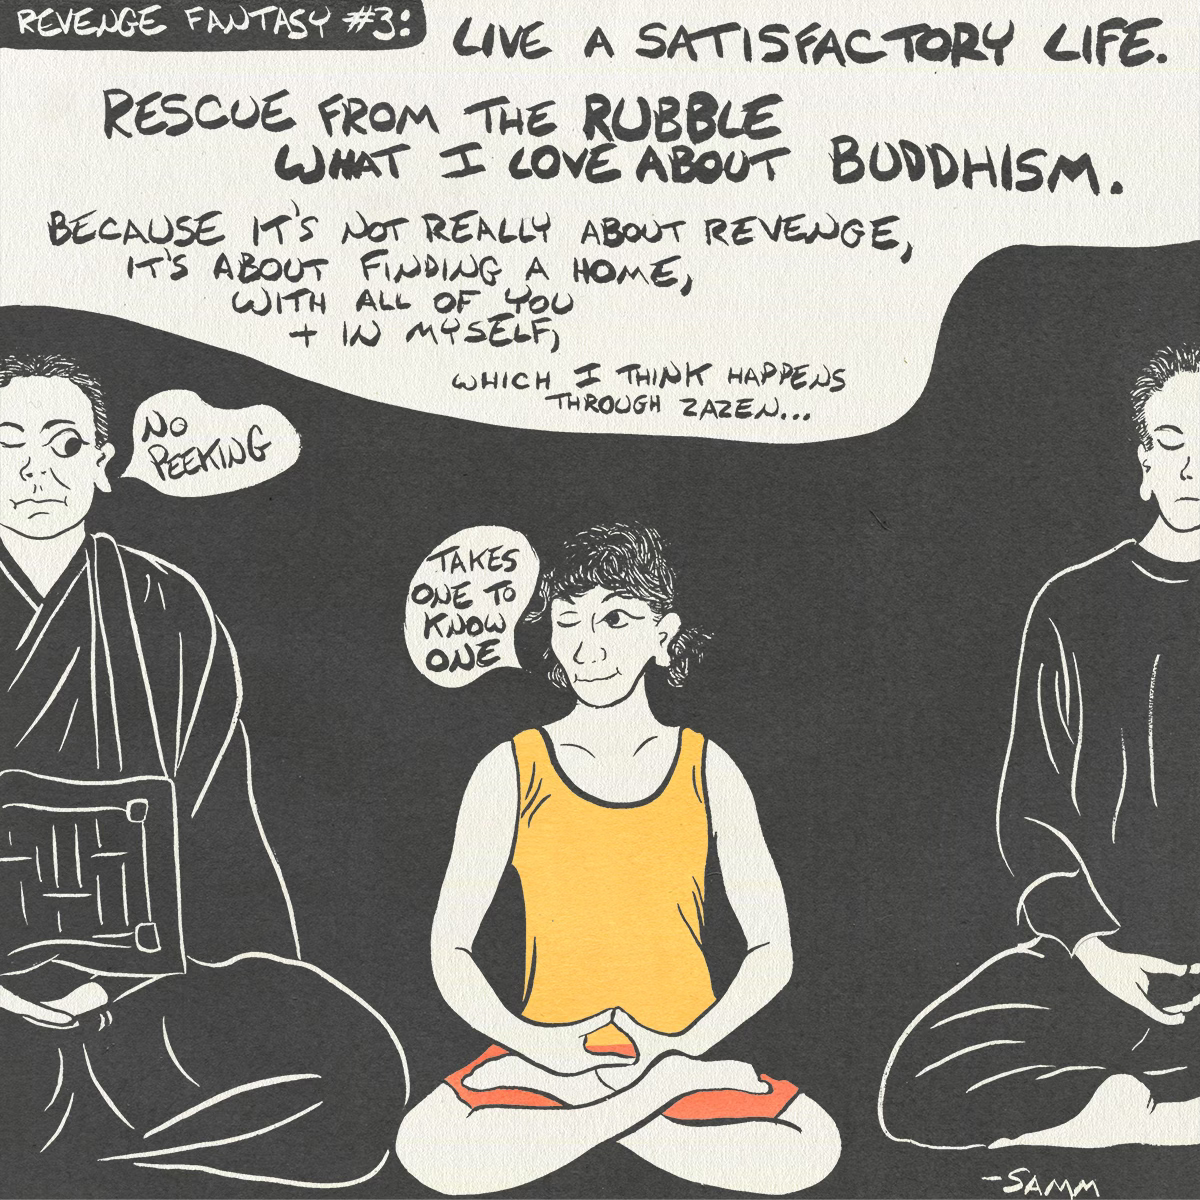 REVENGE FANTASY #3:
LIVE A SATISFACTORY LIFE.
RESCUE FROM THE RUBBLE
WHAT I LOVE ABOUT BUDDHISM.
BECAUSE IT'S NOT REALLY ABOUT REVENGE,
IT'S ABOUT FINDING A HOME,
WITH ALL OF YOU
+ IN MYSELF,
WHICH I THINK HAPPENS
THROUGH ZAZEN...
NO
PEEKING
TAKES
ONE TO
KNOW
ONE
-SAMM